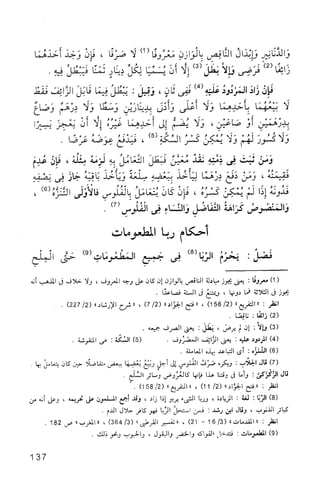 وَالدَّنَانِيرِ وَإِبْدَالُ النَّاقِصِ بِالْوَازِنِ مَعْرُوفًا (1) لَا صَرْفًا ، فَإِنْ وَجَدَ أَحَدُهُمَا
زَائِفًا (2) فَرَضِيَ وَإِلَّا بَطَلَ (3) إِلَّا أَنْ يُسَمِّيَا لِكُلِّ دِينَارٍ ثَمَنًا فَيَبْطُلُ فِيهِ .
فَإِنْ زَادَ الْمَرْدُودُ عَلَيْهِ (4) فَفِي ثَانٍ ، وَقِيلَ : يَبْطُلُ فِيمَا قَابَلَ الزَّائِفَ فَقَطْ
لَا بَيْعُهُمَا بِأَحَدِهِمَا وَلَا أَعْلَى وَأَدْنَى بِدِينَارَيْنِ وَسَطًا وَلَا دِرْهَمٌ وَصَاعٌ
بِدِرْهَمَيْنِ أَوْ صَاعَيْنِ ، وَلَا يُضَمُّ إِلَى أَحَدِهِمَا غَيْرُهُ إِلَّا أَنْ يَعْجِزَ يَسِيرًا
وَلَا كُسُورَ لَهُمْ وَلَا يُمْكِنُ كَسْرُ السِّكَّةِ (5) ، فَيَدْفَعُ عِوَضَهُ عَرْضًا .
وَمَنْ ثَبَتَ فِي ذِمَّتِهِ نَقْدٌ مُعَيَّنٌ فَبَطَلَ التَّعَامُلُ بِهِ لَزِمَهُ مِثْلُهُ ، فَإِنْ عُدِمَ
فَقِيمَتُهُ ، وَمَنْ دَفَعَ دِرْهَمًا لِيَأْخُذَ بِبَعْضِهِ سِلْعَةً وَيَأْخُذَ بَاقِيَهُ جَازَ فِي نِصْفِهِ
فَدُونَهُ إِذَا لَمْ يُمْكِنْ كَسْرُهُ ، فَإِنْ كَانَ يُتَعَامَلُ بِالْفُلُوسِ فَالْأَوْلَى التَّنَزُّهُ (6) ،
وَالْمَنْصُوصُ كَرَاهَةُ التَّفَاضُلِ وَالنَّسَاءِ فِي الْفُلُوسِ (7) .
أحكام ربا المطعومات
فَصْلٌ : يَحْرُمُ الرِّبَا (8) فِي جَمِيعِ الْمَطْعُومَاتِ (9) حَتَّى الْمِلْحِ
(1) معروفًا : يعني يجوز مبادلة الناقص بالوازن إن كان على وجه المعروف ، ولا خلاف في المذهب أنه
يجوز في الثلاثة فما دونها ، ويمتنع في الستة فصاعدًا .
انظر : « التفريع » (2/ 156) ، « فتح الجواد » (2/ 7) ، « شرح الإرشاد » (2/ 227) .
(2) زائفًا : ناقصًا .
(3) وإلا : إن لم يرض ، بطل : يعني الصرف جميعه .
(4) المردود عليه : يعني الزائف المصروف . (5) السكة : هي المنقوشة .
(6) التنزه : أي التباعد بهذه المعاملة .
(7) قال الجلاب : ويكره صرف الفلوس إلى أجل وبيع بعضها ببعض متفاضلًا حين كان يتعامل بها .
قال الزركزني : وأما في وقتنا هذا فإنها كالعروض وسائر السلع .
انظر : « فتح الجواد » (2/ 11) ، « التفريع » (2/ 158) .
(8) الربا : لغة : الزيادة ، وربا الشيء يربو إذا زاد ، وقد أجمع المسلمون على تحريمه ، وعلى أنه من
كبائر الذنوب ، وقال ابن رشد : فمن استحل الربا فهو كافر حلال الدم .
انظر : « المقدمات » (3/ 16 - 21) ، « تفسير القرطبي » (3/ 364) ، « المغرب » ص 182 .
(9) المطعومات : فتدخل الفواكه والخضر والبقول ، والحبوب ونحو ذلك .
137